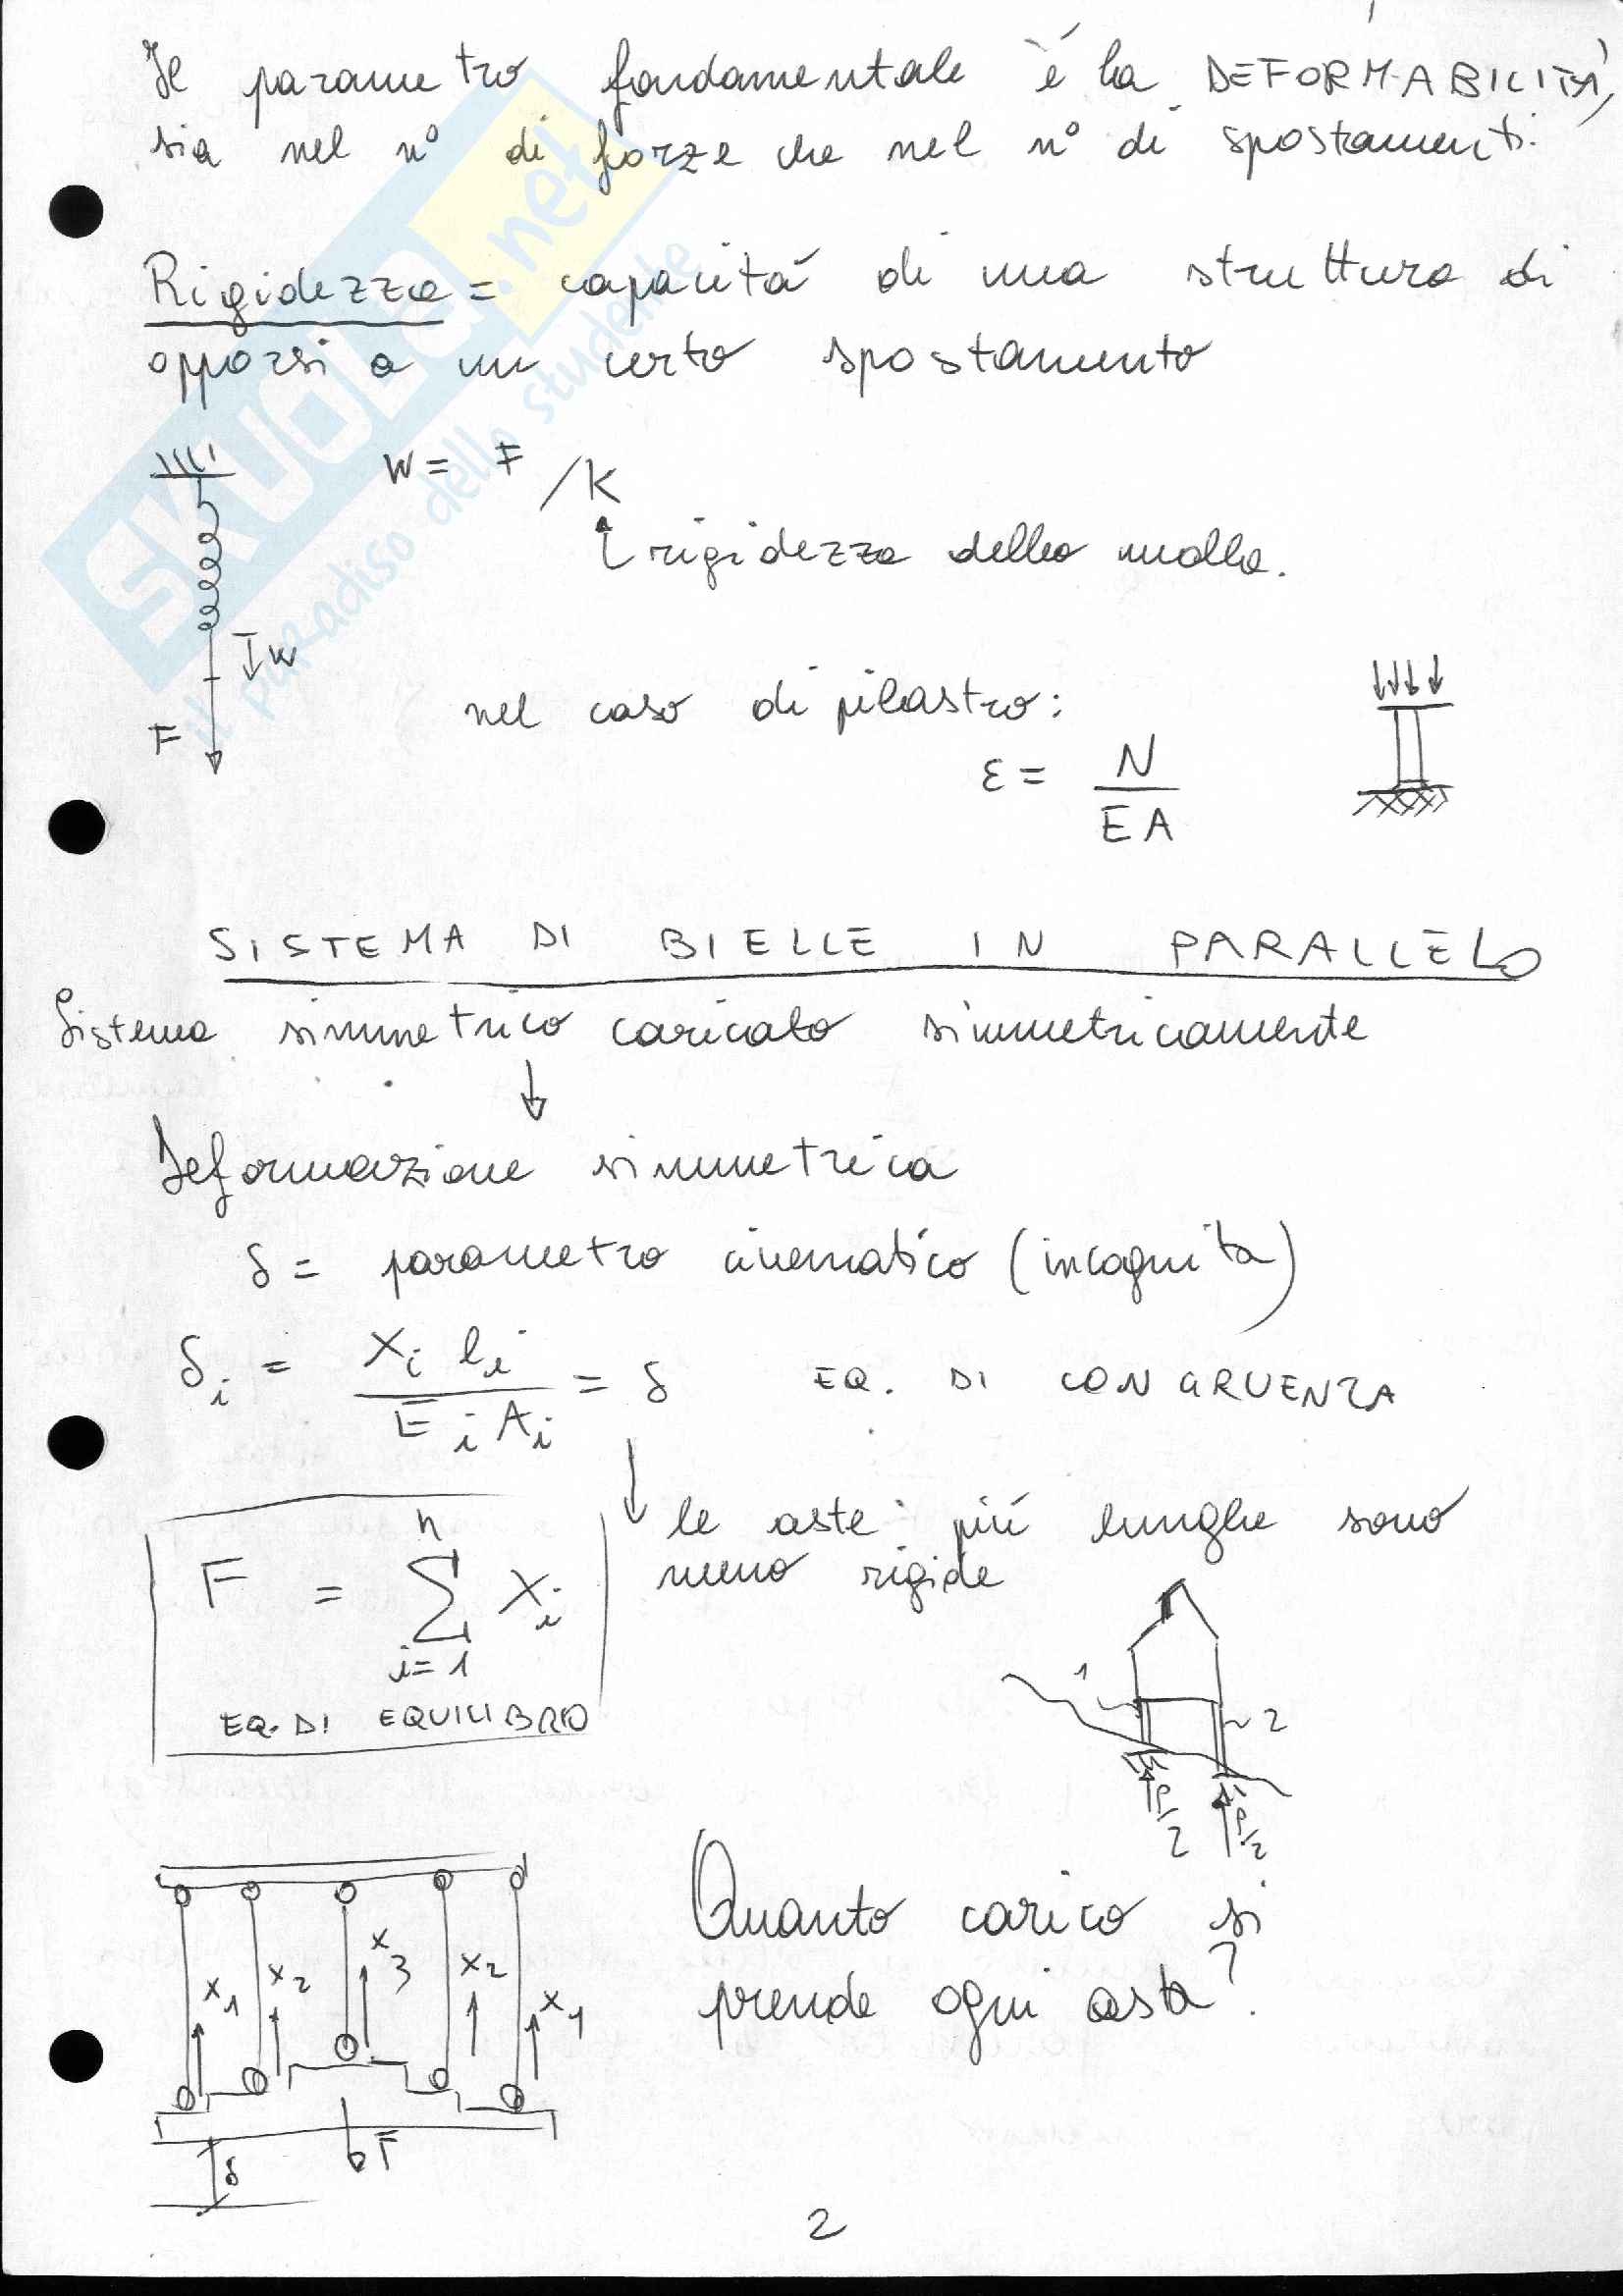 Il parametro fondamentale è la DEFORMABILITÀ,
sia nel n° di forze che nel n° di spostamenti.
Rigidezza = capacità di una struttura di
opporsi a un certo spostamento
W = F /K
rigidezza della molla.
W
F
nel caso di pilastro:
ε = N
EA
SISTEMA DI BIELLE IN PARALLELO
Sistema simmetrico caricato simmetricamente
↓
Deformazione simmetrica
δ = parametro cinematico (incognita)
δi = Xi li / Ei Ai = δ EQ. DI CONGRUENZA
↓ le aste più lunghe sono
meno rigide
n
F = Σ Xi
i=1
EQ. DI EQUILIBRIO
1
2
P/2
P/2
Quanto carico si
prende ogni asta?
X1 X2 X3 X2 X1
F
δ
2
SKUOLA.net
il paradiso dello studente